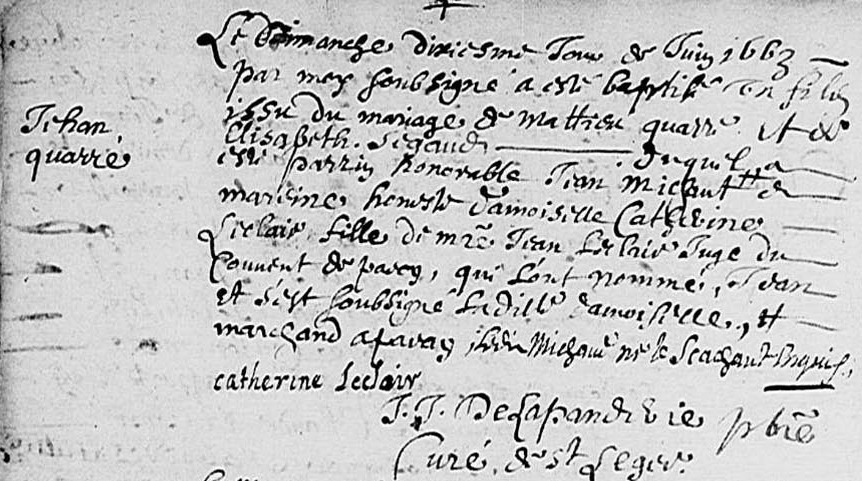 Jehan
quarré
Le Dimanche dixiesme Jour de Juin 1663
par moy soubsigné a esté baptisé un filz
issu du mariage de Mathieu quarré et de
Elisabeth Segaud Duquel a
esté parrin honorable Jean Michaut # &
mareine honeste damoiselle Catherine
Leclair fille de mre Jean Leclair Juge du
Couvent de parey, qui l'ont nommé, Jean
et s'est soubsigné Ladille damoiselle, #
marchand a paray, ledit Michaut ne le Scachant Enquis,
catherine Leclair
J. J. Delapandrerie pbre
Curé de st Leger